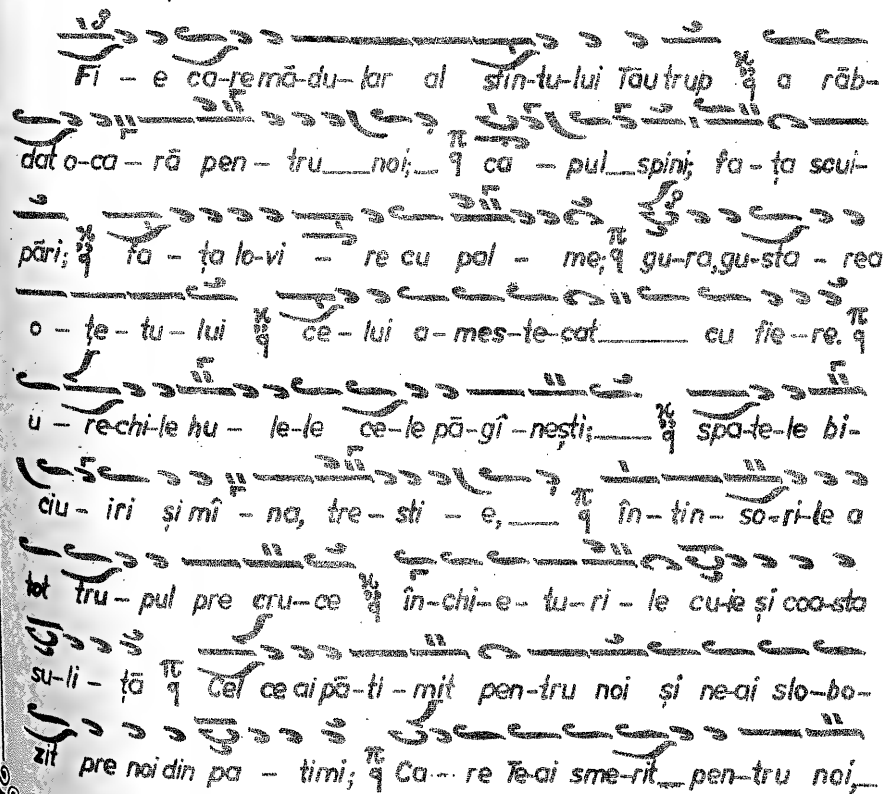 Fi – e ca-re mă-du-lar al sfin-tu-lui Tău trup a răb-
dat o-ca – ră pen – tru___noi;__ ca – pul___spini; fa – ța scui-
pări; fa – ța lo-vi – re cu pal – me; gu-ra, gu-sta – rea
o – țe – tu – lui ce – lui a-mes-te-cat______ cu fie – re.
u – re-chi-le hu – le-le ce-le pă-gî-nești;____ spa-te-le bi-
ciu – iri și mî – na, tre – sti – e,____ în-tin-so-ri-le a
tot tru – pul pre cru – ce în-chi-e – tu – ri – le cu-ie și coa-sta
su-li – ță Cel ce ai pă-ti – mit pen-tru noi și ne-ai slo-bo-
zit pre noi din pa – timi; Ca – re Te-ai sme-rit__ pen-tru noi,__